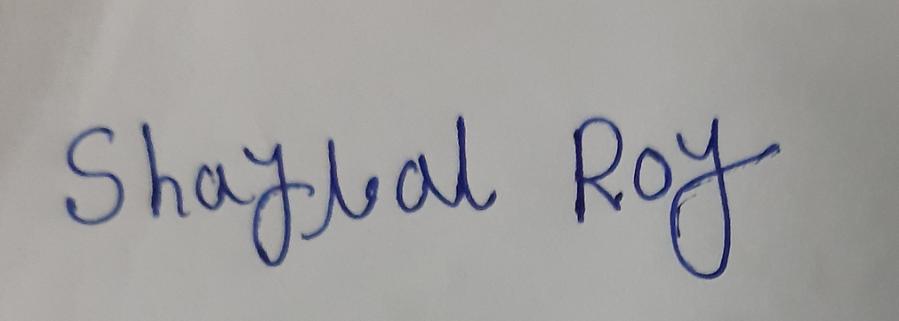 Shaybal Roy